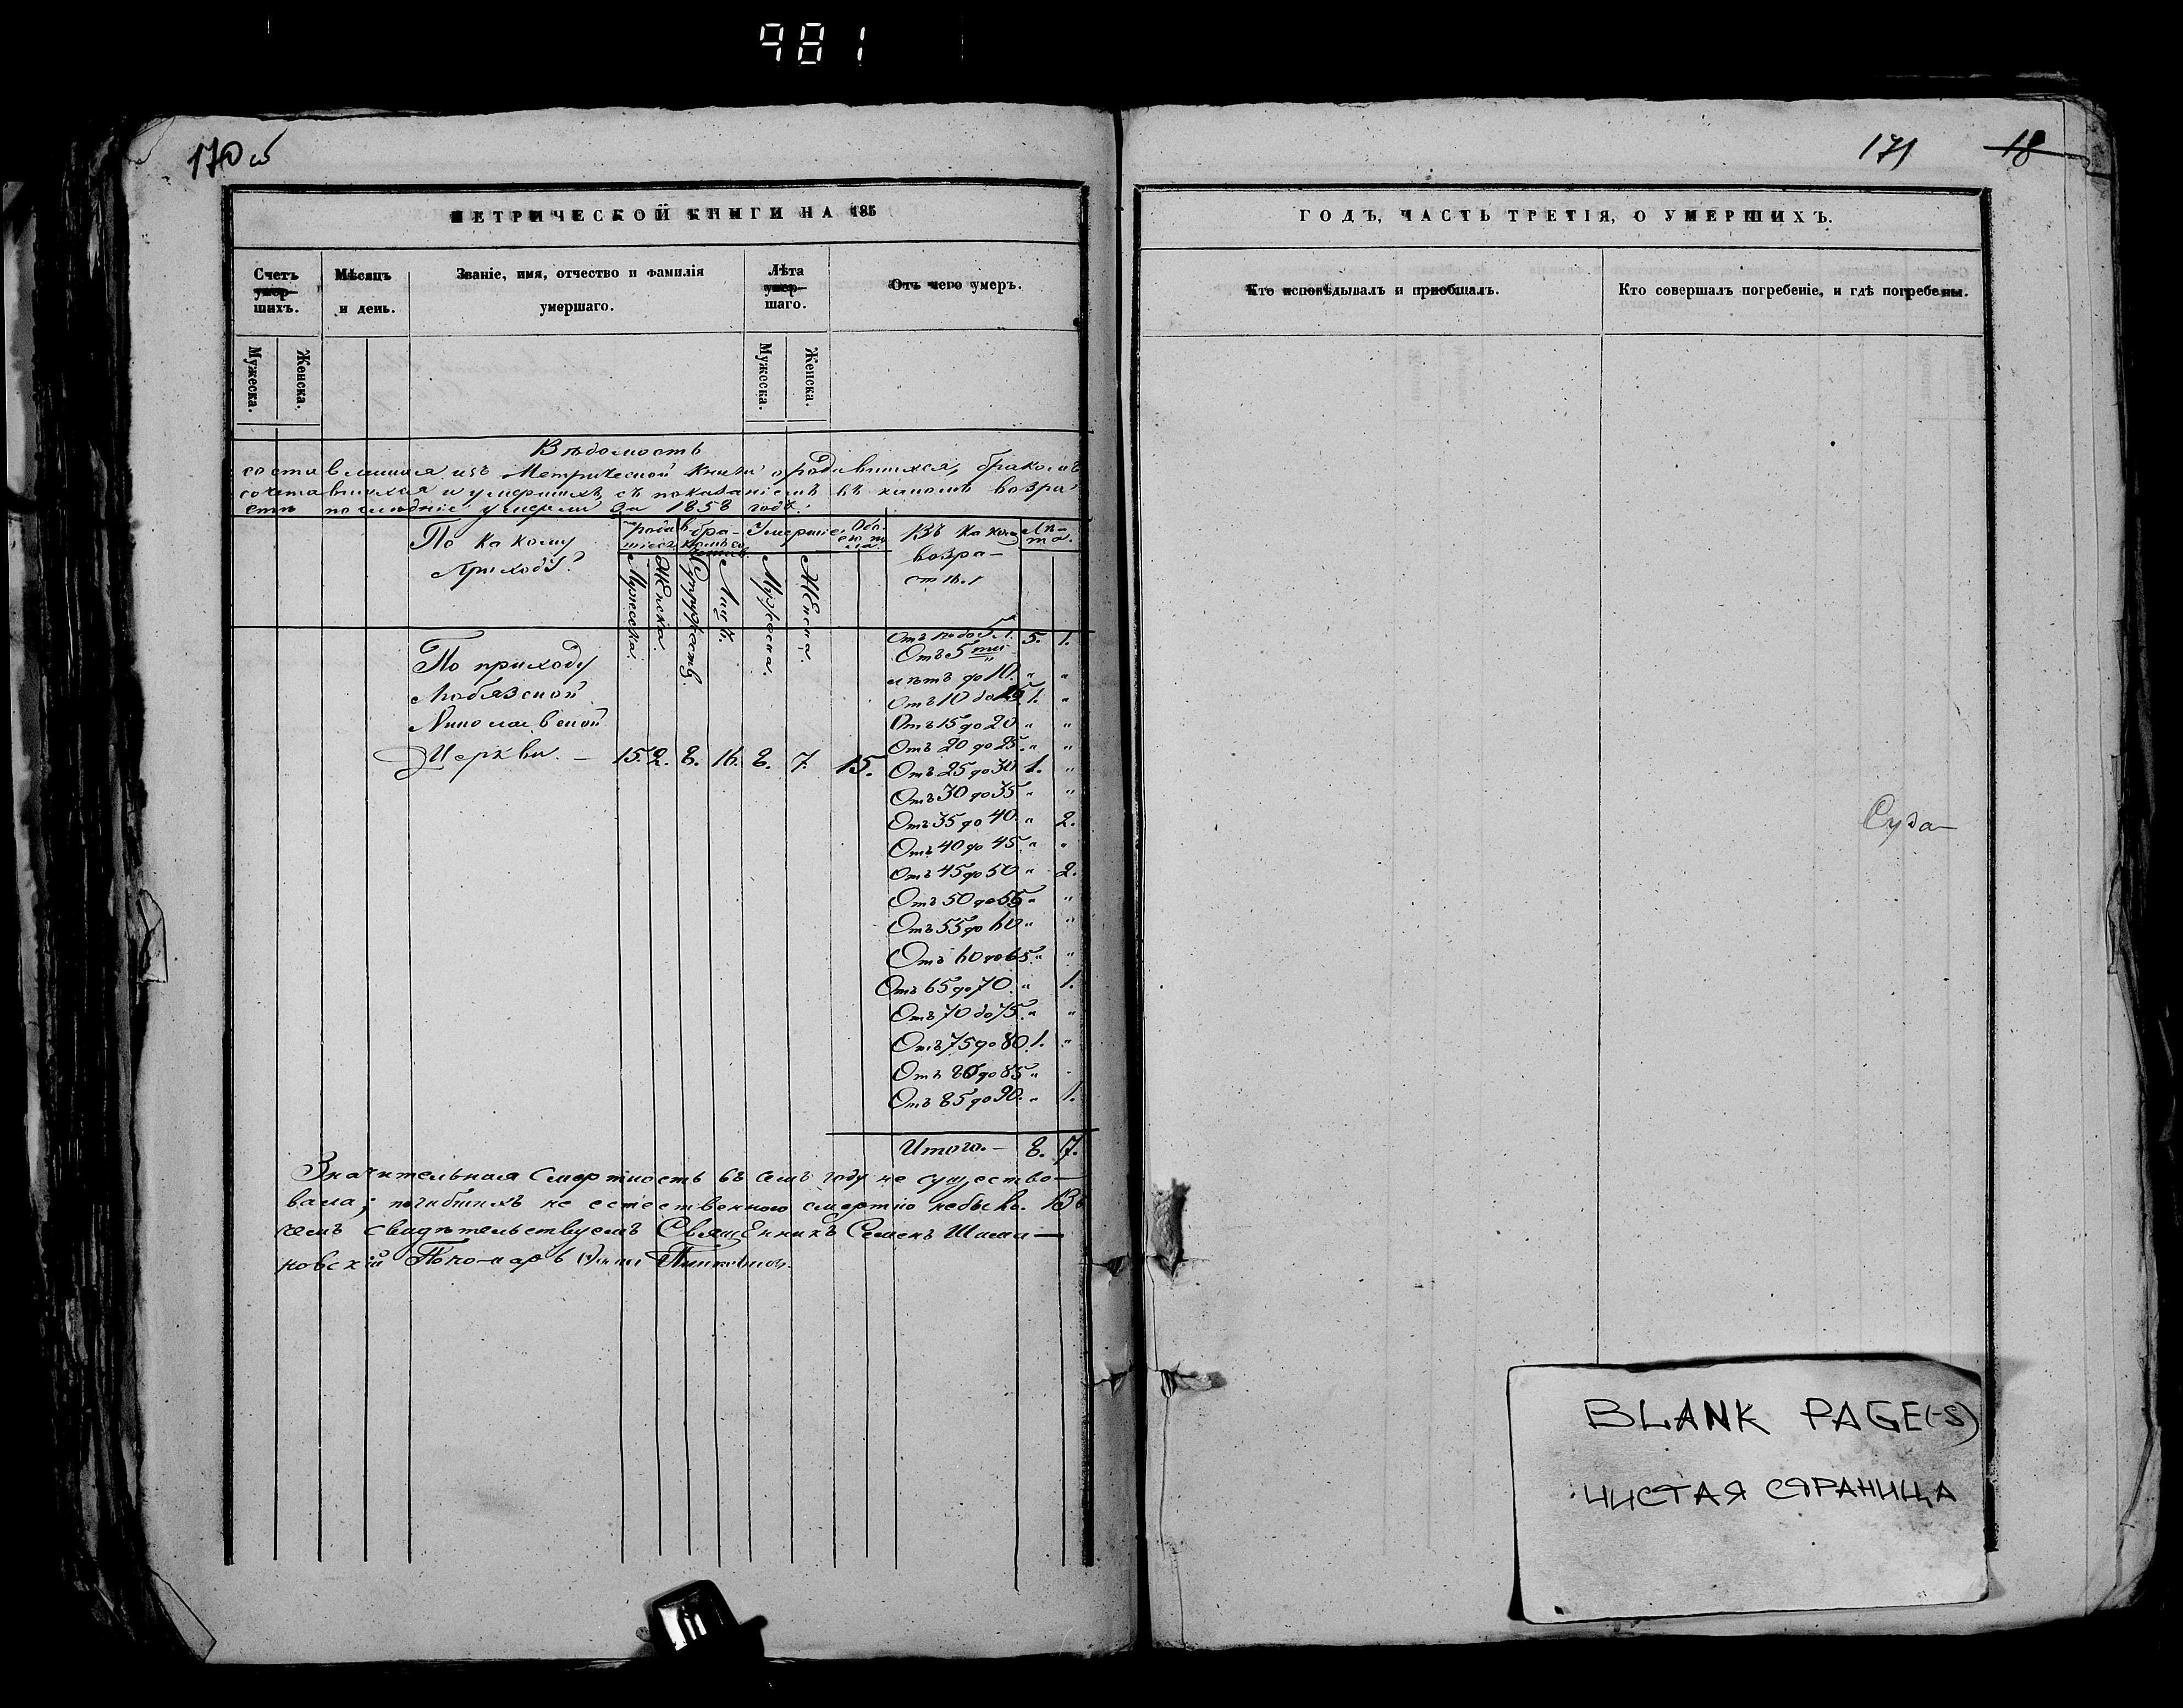 981
170 об
МЕТРИЧЕСКОЙ КНИГИ НА 185
Счетъ умер- шихъ.
Мѣсяцъ и день.
Званіе, имя, отчество и фамилія умершаго.
Лѣта умер- шаго.
Отъ чего умеръ.
Мужеска.
Женска.
Мужеска.
Женска.
Вѣдомость
составленная изъ Метрической книги о родившихся, бракомъ
сочетавшихся и умершихъ, съ показаніемъ въ какомъ возра
стѣ послѣдніе умерли за 1858 годъ.
По какому
Приходу?
Умершіе.
Въ какомъ
возра-
стѣ.
Лѣ-
та.
Мужеска.
Женска.
Супружествъ.
Лицъ.
Мужеска.
Женска.
По приходу
Любязской
Николаевской
Церкви. – 15. 2. 8. 16. 8. 7. 15.
до 5 л. 5. 1.
Отъ 5ти
лѣтъ до 10. " "
Отъ 10 до 15 1. "
Отъ 15 до 20 " "
Отъ 20 до 25. " "
Отъ 25 до 30 1. "
Отъ 30 до 35 " "
Отъ 35 до 40. " 2.
Отъ 40 до 45. " "
Отъ 45 до 50 " 2.
Отъ 50 до 55 " "
Отъ 55 до 60 " "
Отъ 60 до 65. " "
Отъ 65 до 70. " 1.
Отъ 70 до 75. " "
Отъ 75 до 80. 1. "
Отъ 80 до 85 " "
Отъ 85 до 90. " 1.
Итого. – 8. 7.
Значительная смертность въ семъ году не существо-
вала; погибшихъ не естественною смертію небыло. Въ
чемъ свидѣтельствуемъ Священникъ Семенъ Шима-
новскій Пономарь
171 18
ГОДЪ, ЧАСТЬ ТРЕТІЯ, О УМЕРШИХЪ.
Кто исповѣдывалъ и пріобщалъ.
Кто совершалъ погребеніе, и гдѣ погребены.
BLANK PAGE(-S)
ЧИСТАЯ СТРАНИЦА